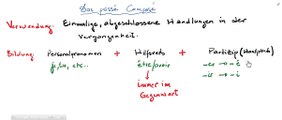 Das passé Composé
Verwendung: Einmalige, abgeschlossene Handlungen in der
vergangenheit.
Bildung: Personalpronomen + Hilfsverb + Partizip
je, tu, etc.. être/avoir -er → -é
immer im -ir → -i
Gegenwart